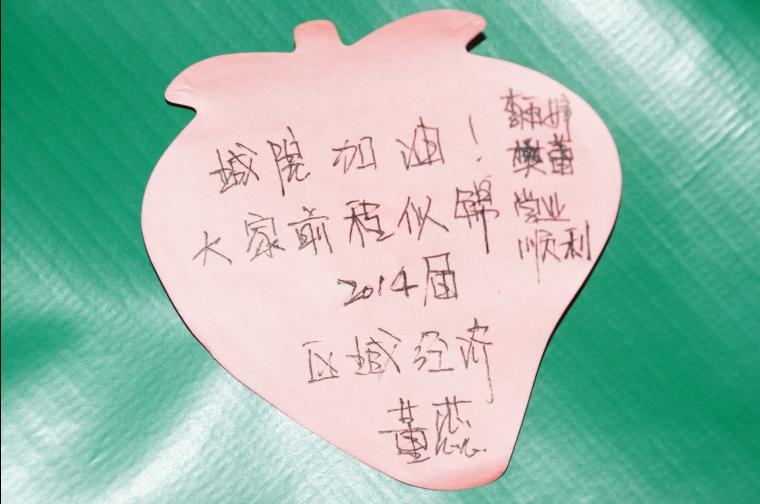 城院加油！
大家前程似锦
2014届
区域经济
董蕊
李雨婷
樊蕾
学业
顺利